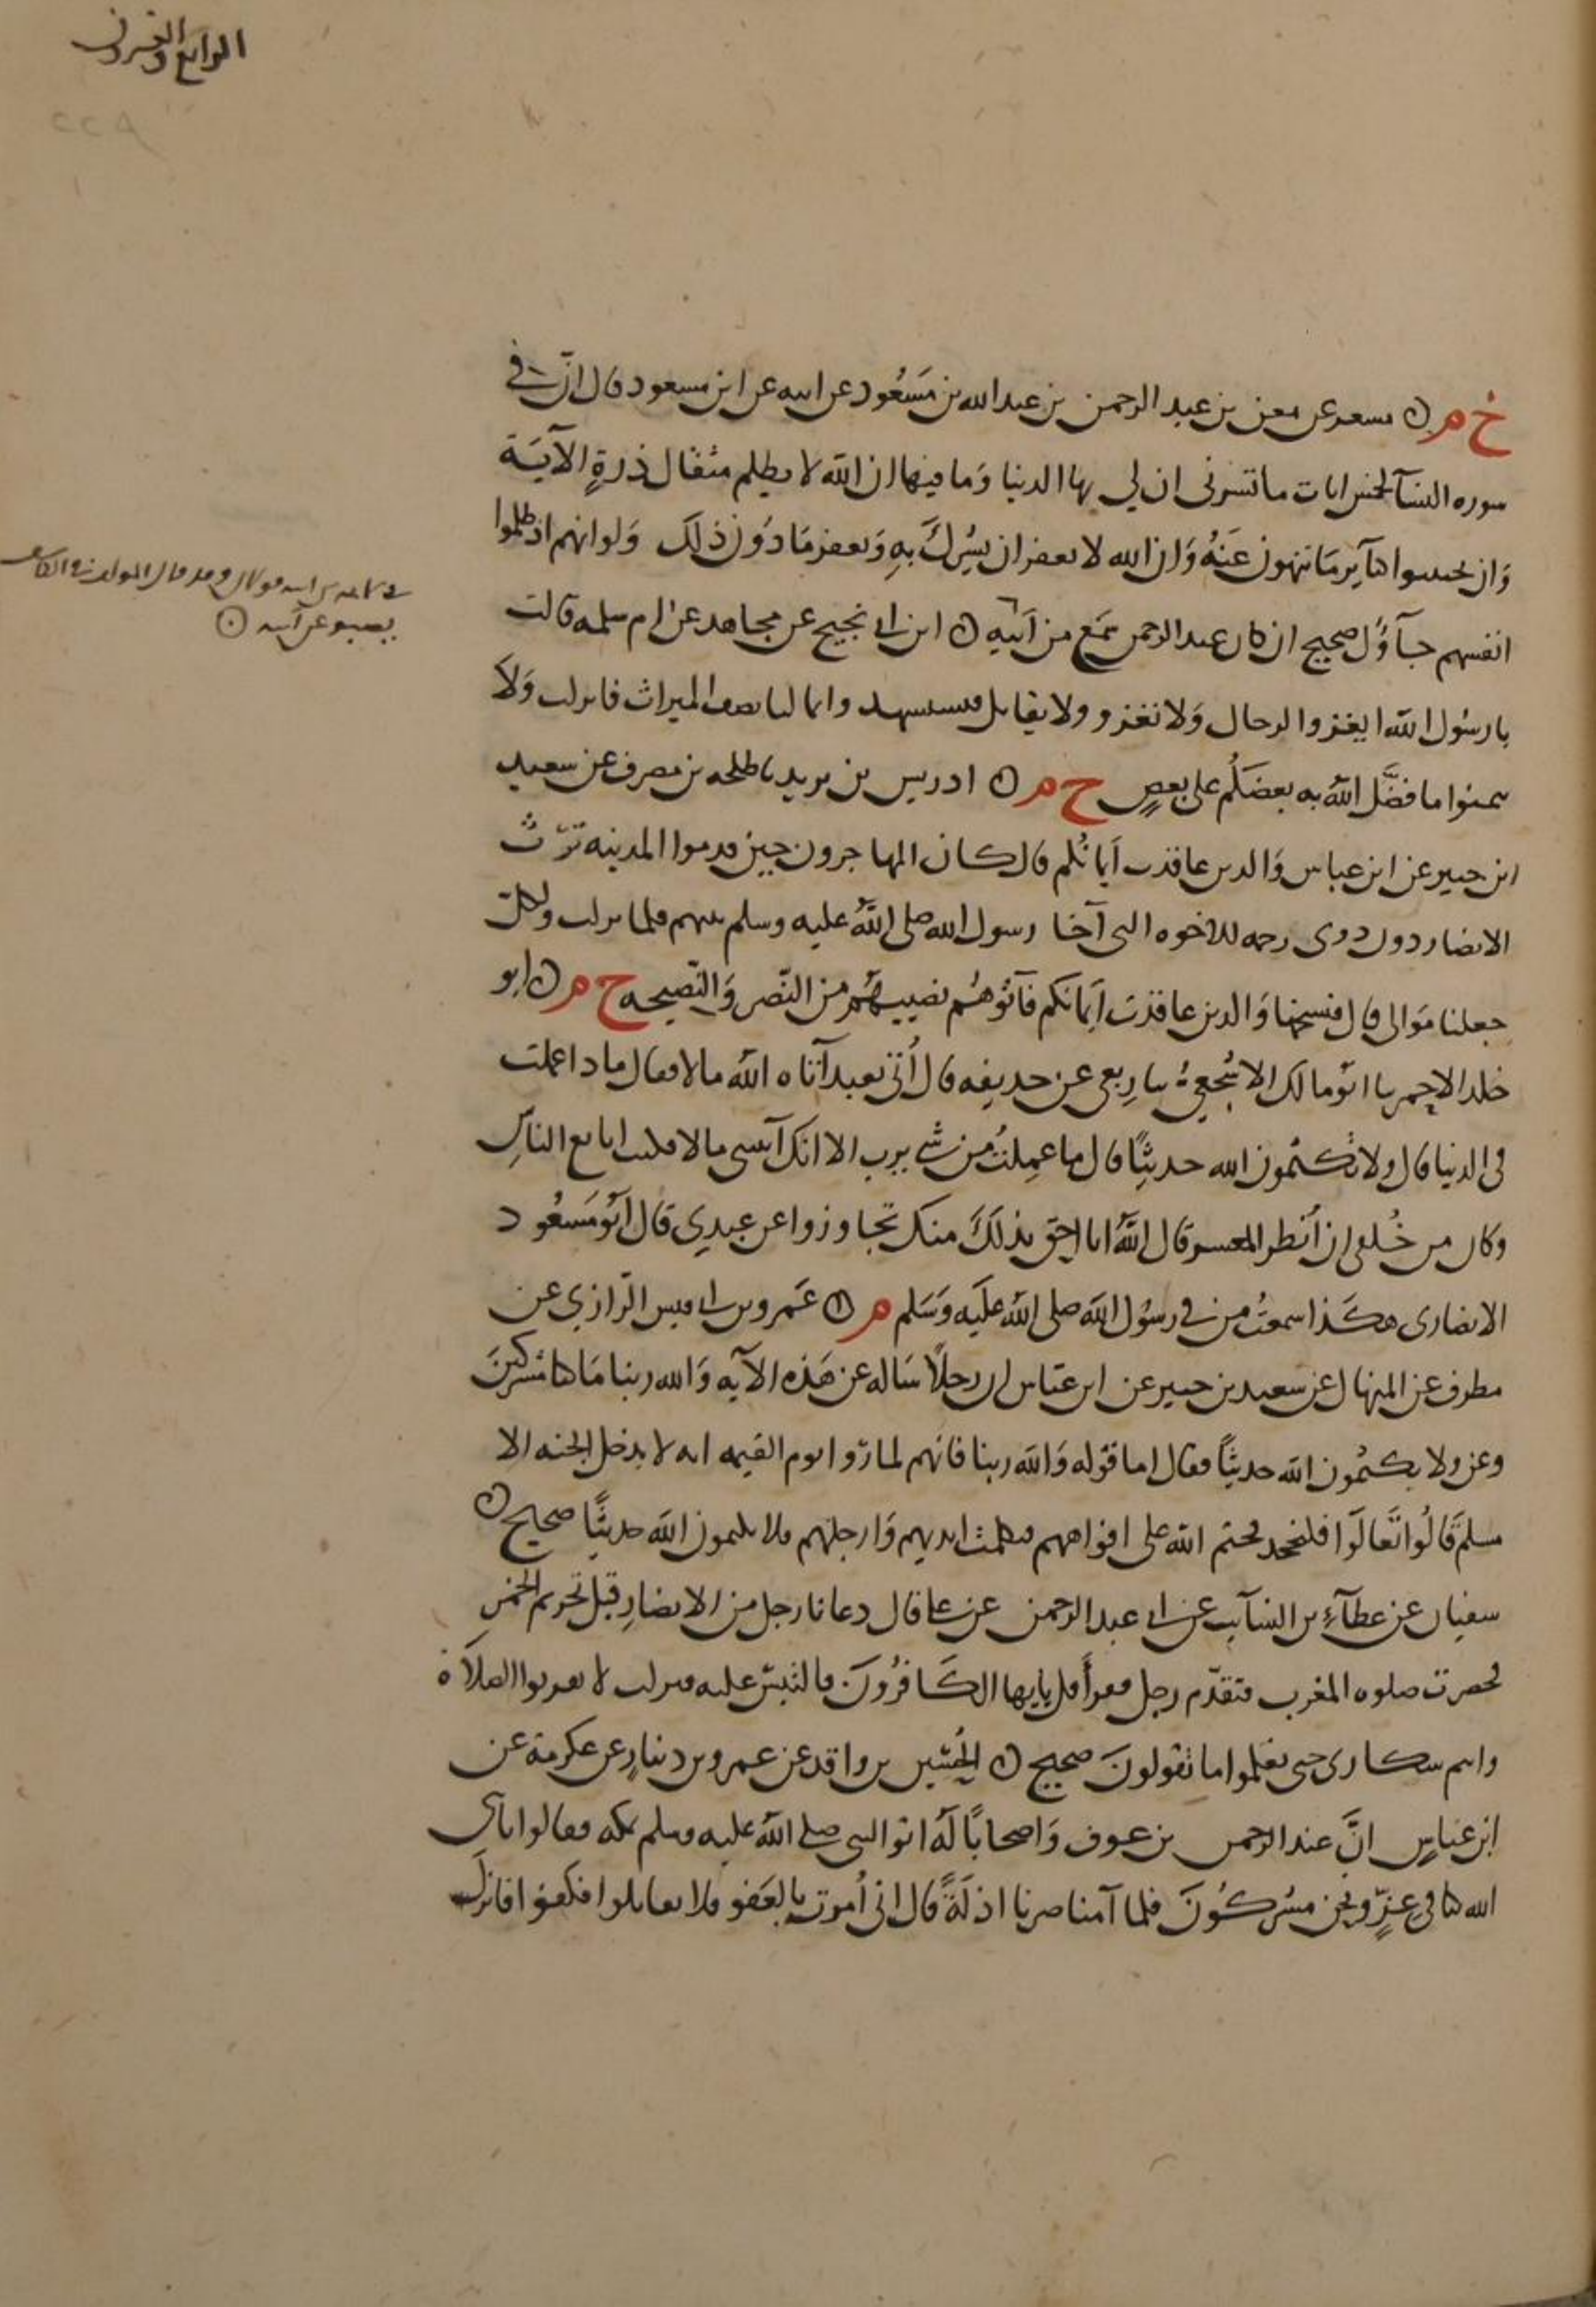 الرابع والعشرون
٢٢٨
خ م ۞ مسعر عن معن بن عبد الرحمن بن عبد الله بن مسعود عن ابيه عن ابن مسعود قال ان في
سوره النسآ لخمس ايات ما تسرني ان لي بها الدنيا وما فيها ان الله لا يظلم مثقال ذرة الآية
وان تجتنبوا كبآير ما تنهون عنه وان الله لا يغفر ان يشرك به ويغفر ما دون ذلك ولو انهم اذ ظلموا
انفسهم جآؤك صحيح ان كان عبد الرحمن سمع من ابيه ۞ ابن ابي نجيح عن مجاهد عن ام سلمه قالت
يا رسول الله ايغزوا الرجال ولا نغزو ولا نقاتل فنستشهد وانما لنا نصف الميراث فانزلت ولا
تتمنوا ما فضل الله به بعضكم على بعض خ م ۞ ادريس بن يزيد نا طلحه بن مصرف عن سعيد
ابن جبير عن ابن عباس والذين عاقدت أيمانكم قال كان المهاجرون حين قدموا المدينه ترث
الانصار دون ذوي رحمه للاخوه التي آخا رسول الله صلى الله عليه وسلم بينهم فلما نزلت ولكل
جعلنا موالي قال فنسختها والذين عاقدت أيمانكم فآتوهم نصيبهم من النصر والنصيحه خ م ۞ ابو
خلد الاحمر نا ابو مالك الاشجعي نا ربعي عن حذيفه قال أتي بعبد آتاه الله مالا فقال ماذا عملت
في الدنيا قال ولا تكتمون الله حديثا قال ما عملت من شي يرب الا انك آتيتني مالا فكنت ابايع الناس
وكان من خلقي ان أنظر المعسر قال الله انا احق بذلك منك تجاوزوا عن عبدي قال أبو مسعود
الانصاري هكذا سمعت من في رسول الله صلى الله عليه وسلم م ۞ عمرو بن ابي قيس الرازي عن
مطرف عن المنهال عن سعيد بن جبير عن ابن عباس ان رجلا سأله عن هذه الآيه والله ربنا ما كنا مشركين
وعن ولا يكتمون الله حديثا فقال اما قوله والله ربنا فانهم لما رأوا يوم القيمه انه لا يدخل الجنه الا
مسلم قالوا تعالوا فلنجحد فختم الله على افواههم فتكلمت ايديهم وارجلهم فلا يكتمون الله حديثا صحيح ۞
سفيان عن عطآء بن السآيب عن ابي عبد الرحمن عن علي قال دعانا رجل من الانصار قبل تحريم الخمر
فحضرت صلوه المغرب فتقدم رجل فقرأ قل يايها الكافرون فالتبس عليه فنزلت لا تقربوا الصلاة
وانتم سكارى حتى تعلموا ما تقولون صحيح ۞ الحسين بن واقد عن عمرو بن دينار عن عكرمة عن
ابن عباس ان عبد الرحمن بن عوف واصحابا له اتوا النبي صلى الله عليه وسلم بمكه فقالوا يا نبي
الله كنا في عز ونحن مشركون فلما آمنا صرنا اذلة قال اني أمرت بالعفو فلا تقاتلوا فكفوا فانزل